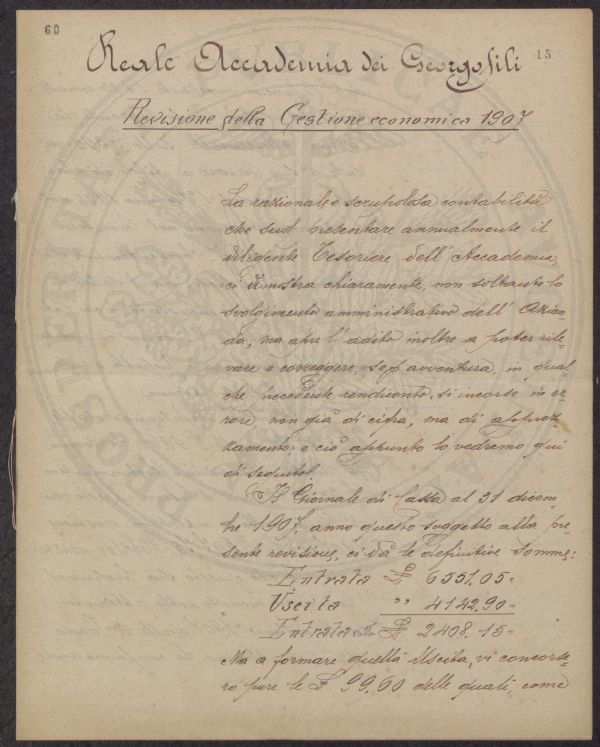 60
15
Reale Accademia dei Georgofili
Revisione della Gestione economica 1907
La razionale e scrupolosa contabilità
che suol presentare annualmente il
diligente Tesoriere dell' Accademia,
ci dimostra chiaramente, non soltanto lo
svolgimento amministrativo dell' Azien-
da, ma apre l' adito inoltre a poter rile-
vare e correggere, se p. avventura, in qual-
che precedente rendiconto, si incorse in er-
rore, non già di cifra, ma di apprez-
zamento; e ciò appunto lo vedremo qui
di seguito.
Il Giornale di Cassa al 31 dicem-
bre 1907, anno questo soggetto alla pre-
sente revisione, ci dà le definitive somme:
Entrata £ 6551.05=
Uscita " 4142.90=
Entrata netta £ 2408.15=
Ma a formare quella Uscita, vi concorse-
ro pure le £ 99.60 delle quali, come